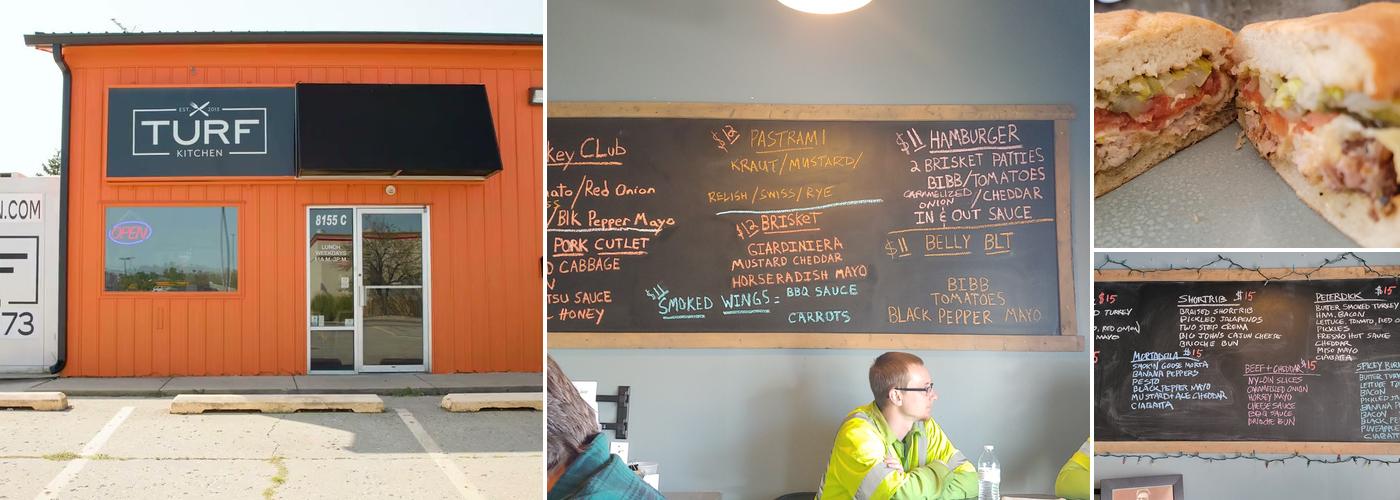 EST. 2013
TURF
KITCHEN
OPEN
8155 C
LUNCH
WEEKDAYS
11A.M.-3P.M.
N.COM
F
73
key CLub
ato/Red Onion
/Blk Pepper Mayo
PORK CUTLET
O CABBAGE
TSU SAUCE
HONEY
$12 PASTRAMI
KRAUT/MUSTARD/
RELISH/SWISS/RYE
$12 BRISKET
GIARDINIERA
MUSTARD CHEDDAR
HORSERADISH MAYO
$11 SMOKED WINGS = BBQ SAUCE
CARROTS
$11 HAMBURGER
2 BRISKET PATTIES
BIBB/TOMATOES
CARAMELIZED ONION/CHEDDAR
IN & OUT SAUCE
$11 BELLY BLT
BIBB
TOMATOES
BLACK PEPPER MAYO
$15
D TURKEY
D, RED ONION
SHORTRIB $15
BRAISED SHORTRIB
PICKLED JALAPENOS
TWO STEP CREMA
BIG JOHN'S CAJUN CHEESE
BRIOCHE BUN
PETERDICK $15
BUTTER SMOKED TURKEY
HAM, BACON
LETTUCE, TOMATO, RED O
PICKLES
FRESNO HOT SAUCE
CHEDDAR
MISO MAYO
CIABATTA
MORTADELLA $15
SMOKIN GOOSE MORTA
BANANA PEPPERS
PESTO
BLACK PEPPER MAYO
MUSTARD+ALE CHEDDAR
CIABATTA
BEEF+CHEDDAR $15
NY LOIN SLICES
CARAMELIZED ONION
HORSEY MAYO
CHEESE SAUCE
BBQ SAUCE
BRIOCHE BUN
SPICEY
BUTTER TURK
LETTUCE T
BACON
PICKLED JA
BANANA P
BACON
BLACK PE
PINEAPPLE
CIABAT